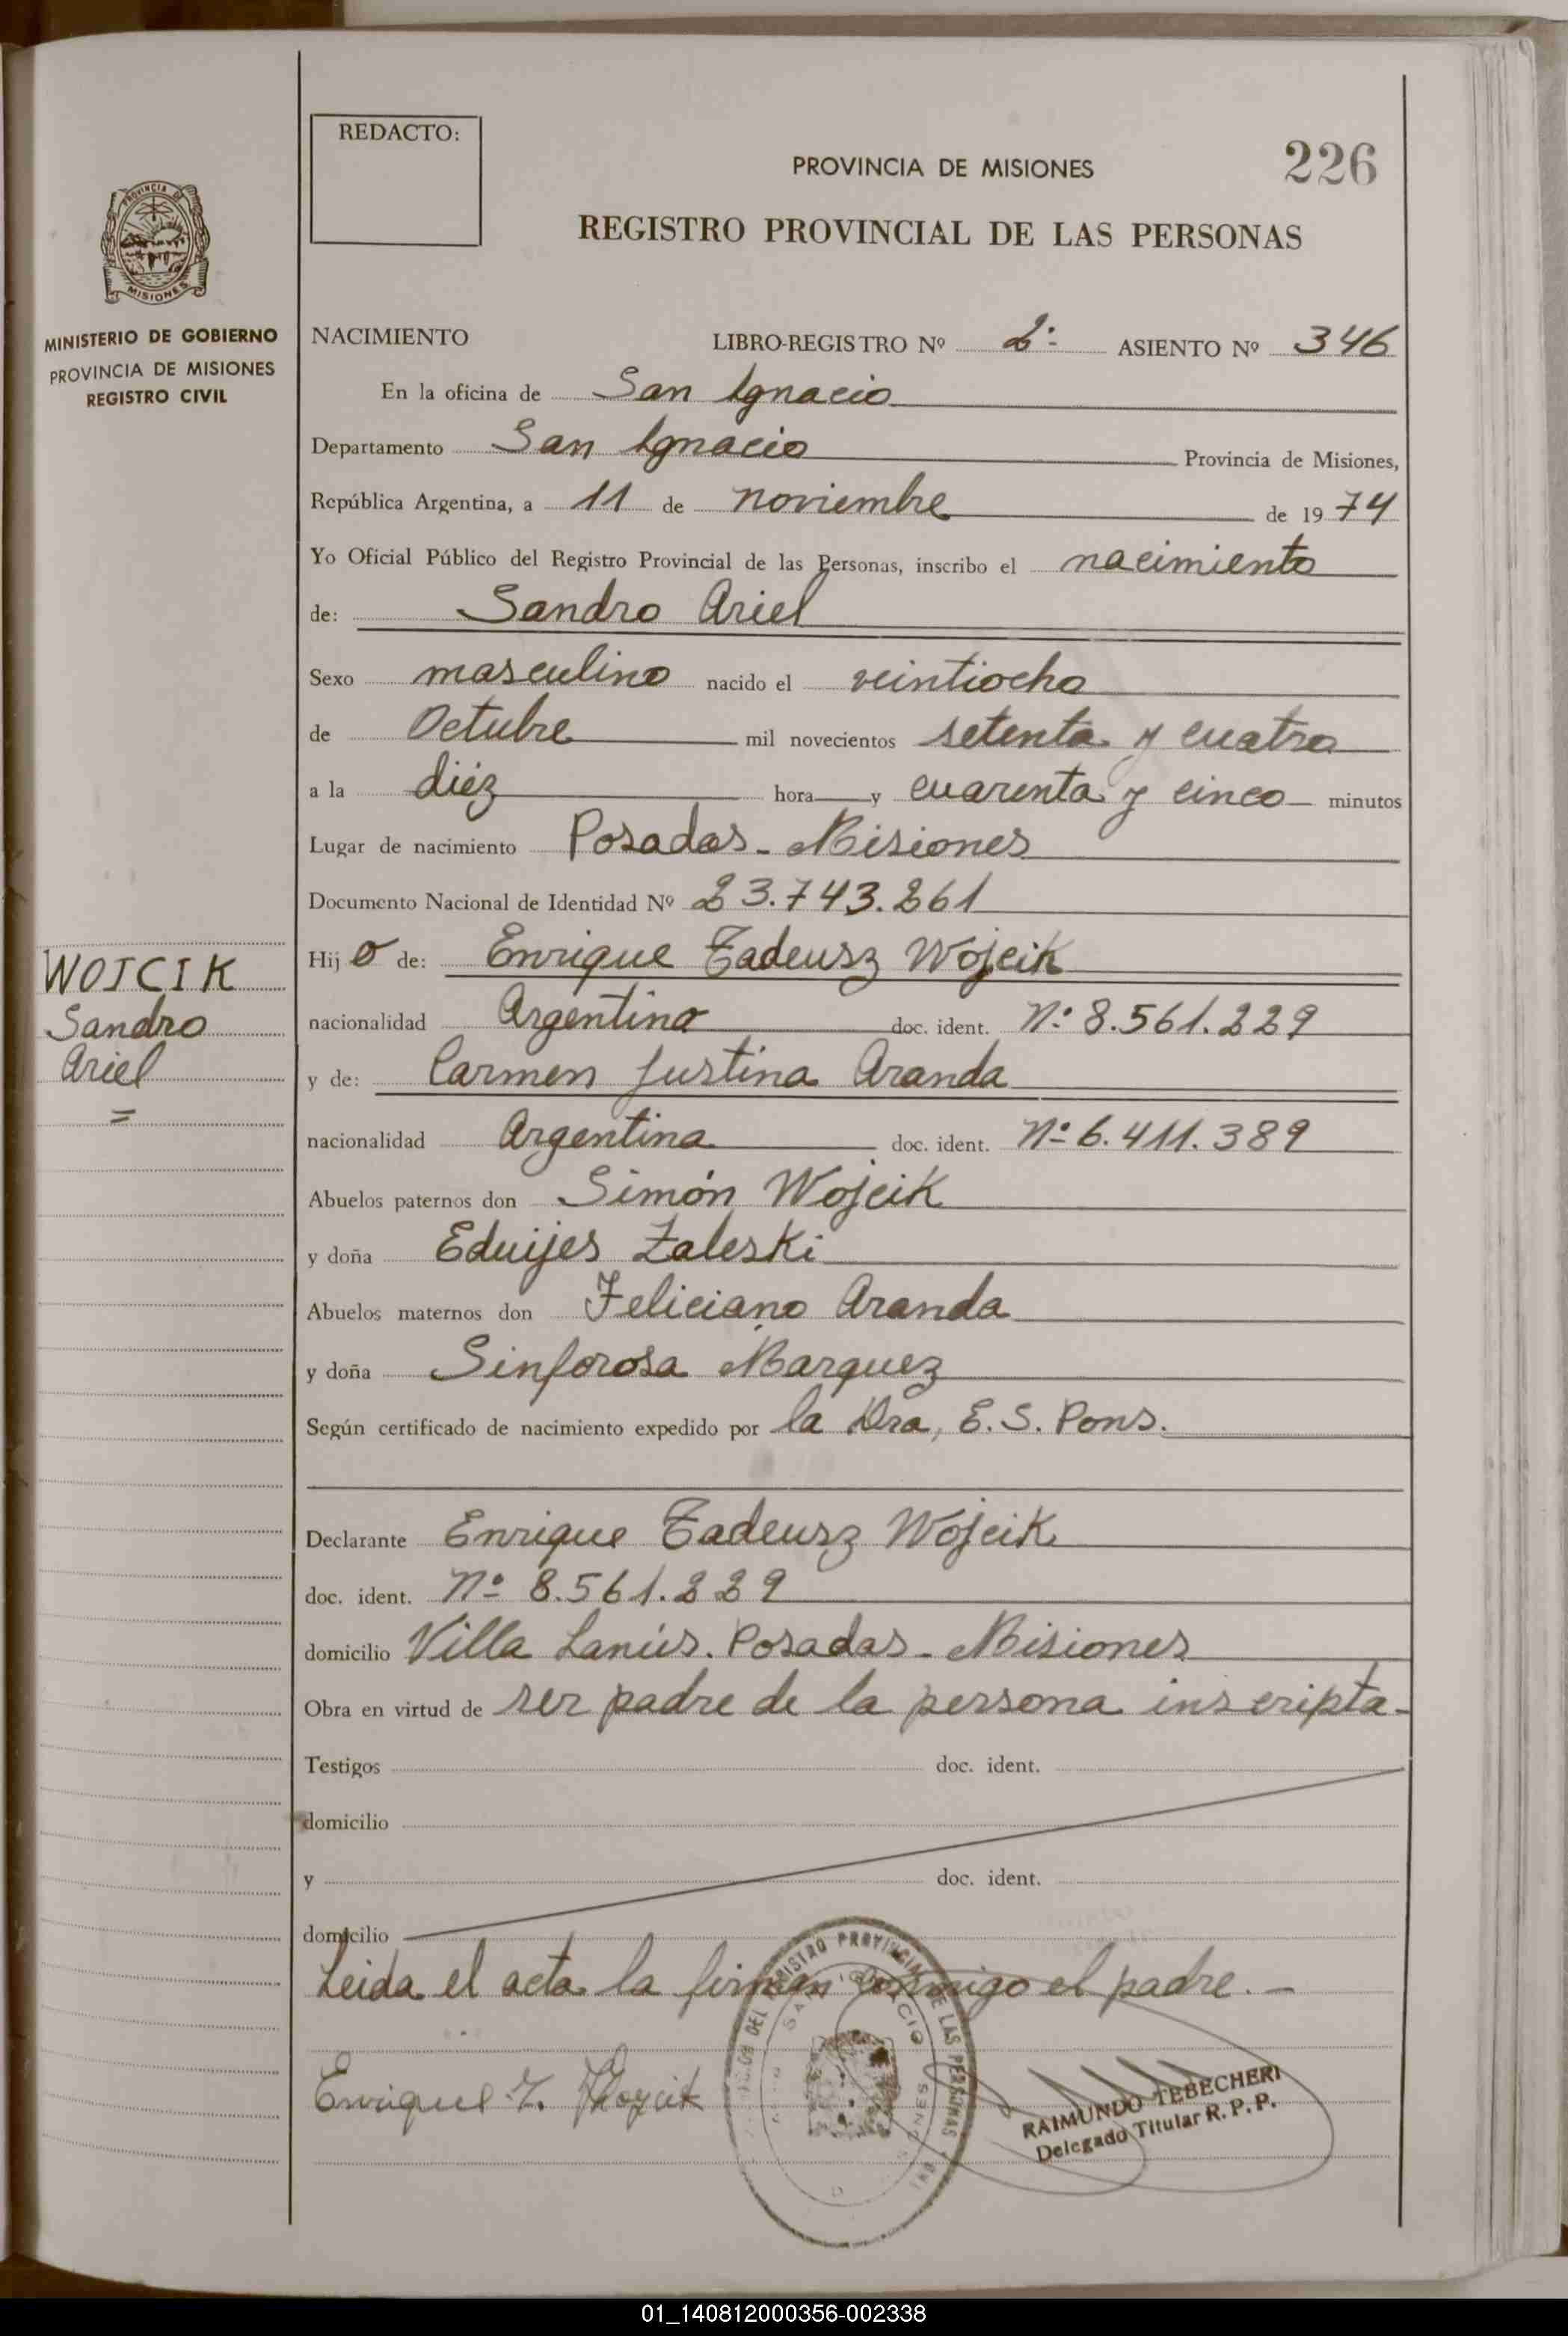 REDACTO:
226
PROVINCIA DE MISIONES
REGISTRO PROVINCIAL DE LAS PERSONAS
PROVINCIA DE
MISIONES
MINISTERIO DE GOBIERNO
PROVINCIA DE MISIONES
REGISTRO CIVIL
NACIMIENTO LIBRO-REGISTRO Nº 2º ASIENTO Nº 346
En la oficina de San Ignacio
Departamento San Ignacio Provincia de Misiones,
República Argentina, a 11 de noviembre de 1974
Yo Oficial Público del Registro Provincial de las Personas, inscribo el nacimiento
de: Sandro Ariel
Sexo masculino nacido el veintiocho
de Octubre mil novecientos setenta y cuatro
a la diéz hora y cuarenta y cinco minutos
Lugar de nacimiento Posadas - Misiones
Documento Nacional de Identidad Nº 23.743.261
WOJCIK
Sandro
Ariel
=
Hijo de: Enrique Tadeusz Wojcik
nacionalidad Argentino doc. ident. Nº 8.561.229
y de: Carmen Justina Aranda
nacionalidad Argentina doc. ident. Nº 6.411.389
Abuelos paternos don Simón Wojcik
y doña Eduijes Zaleski
Abuelos maternos don Feliciano Aranda
y doña Sinforosa Marquez
Según certificado de nacimiento expedido por la Dra, E. S. Pons.
Declarante Enrique Tadeusz Wojcik
doc. ident. Nº 8.561.229
domicilio Villa Lanús. Posadas - Misiones
Obra en virtud de ser padre de la persona inscripta-
Testigos doc. ident.
domicilio
y doc. ident.
domicilio
Leida el acta la firman conmigo el padre. -
Enrique T. Wojcik
RAIMUNDO TEBECHERI
Delegado Titular R. P. P.
01_140812000356-002338